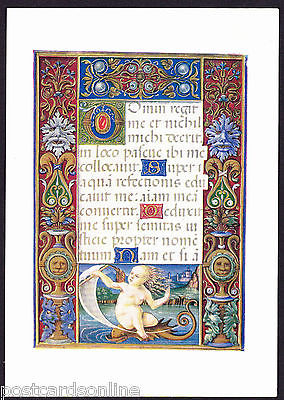 Domin regit
me et nichil
michi deerit
in loco pascue ibi me
collocauit. Super
aquā refectionis edu
cauit me: aiam mea
conuertit. Deduxit
me super semitas iu
sticie propter nomē
suum. Nam et si a
postcardsonline
postcardsonline